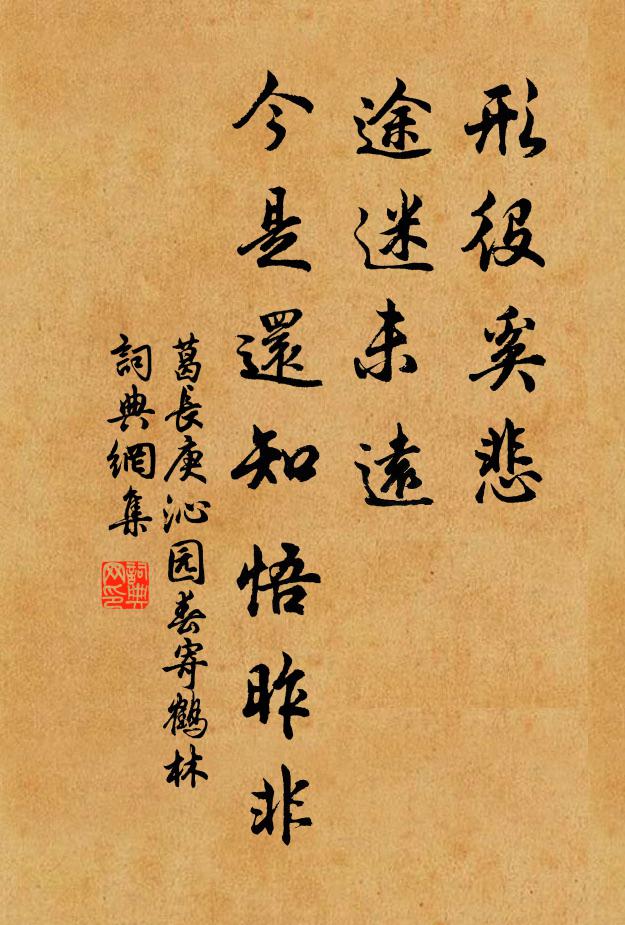 形役奚悲
途迷未遠
今是還知悟昨非
葛長庚沁园春寄鶴林
詞典網集
詞典
网印